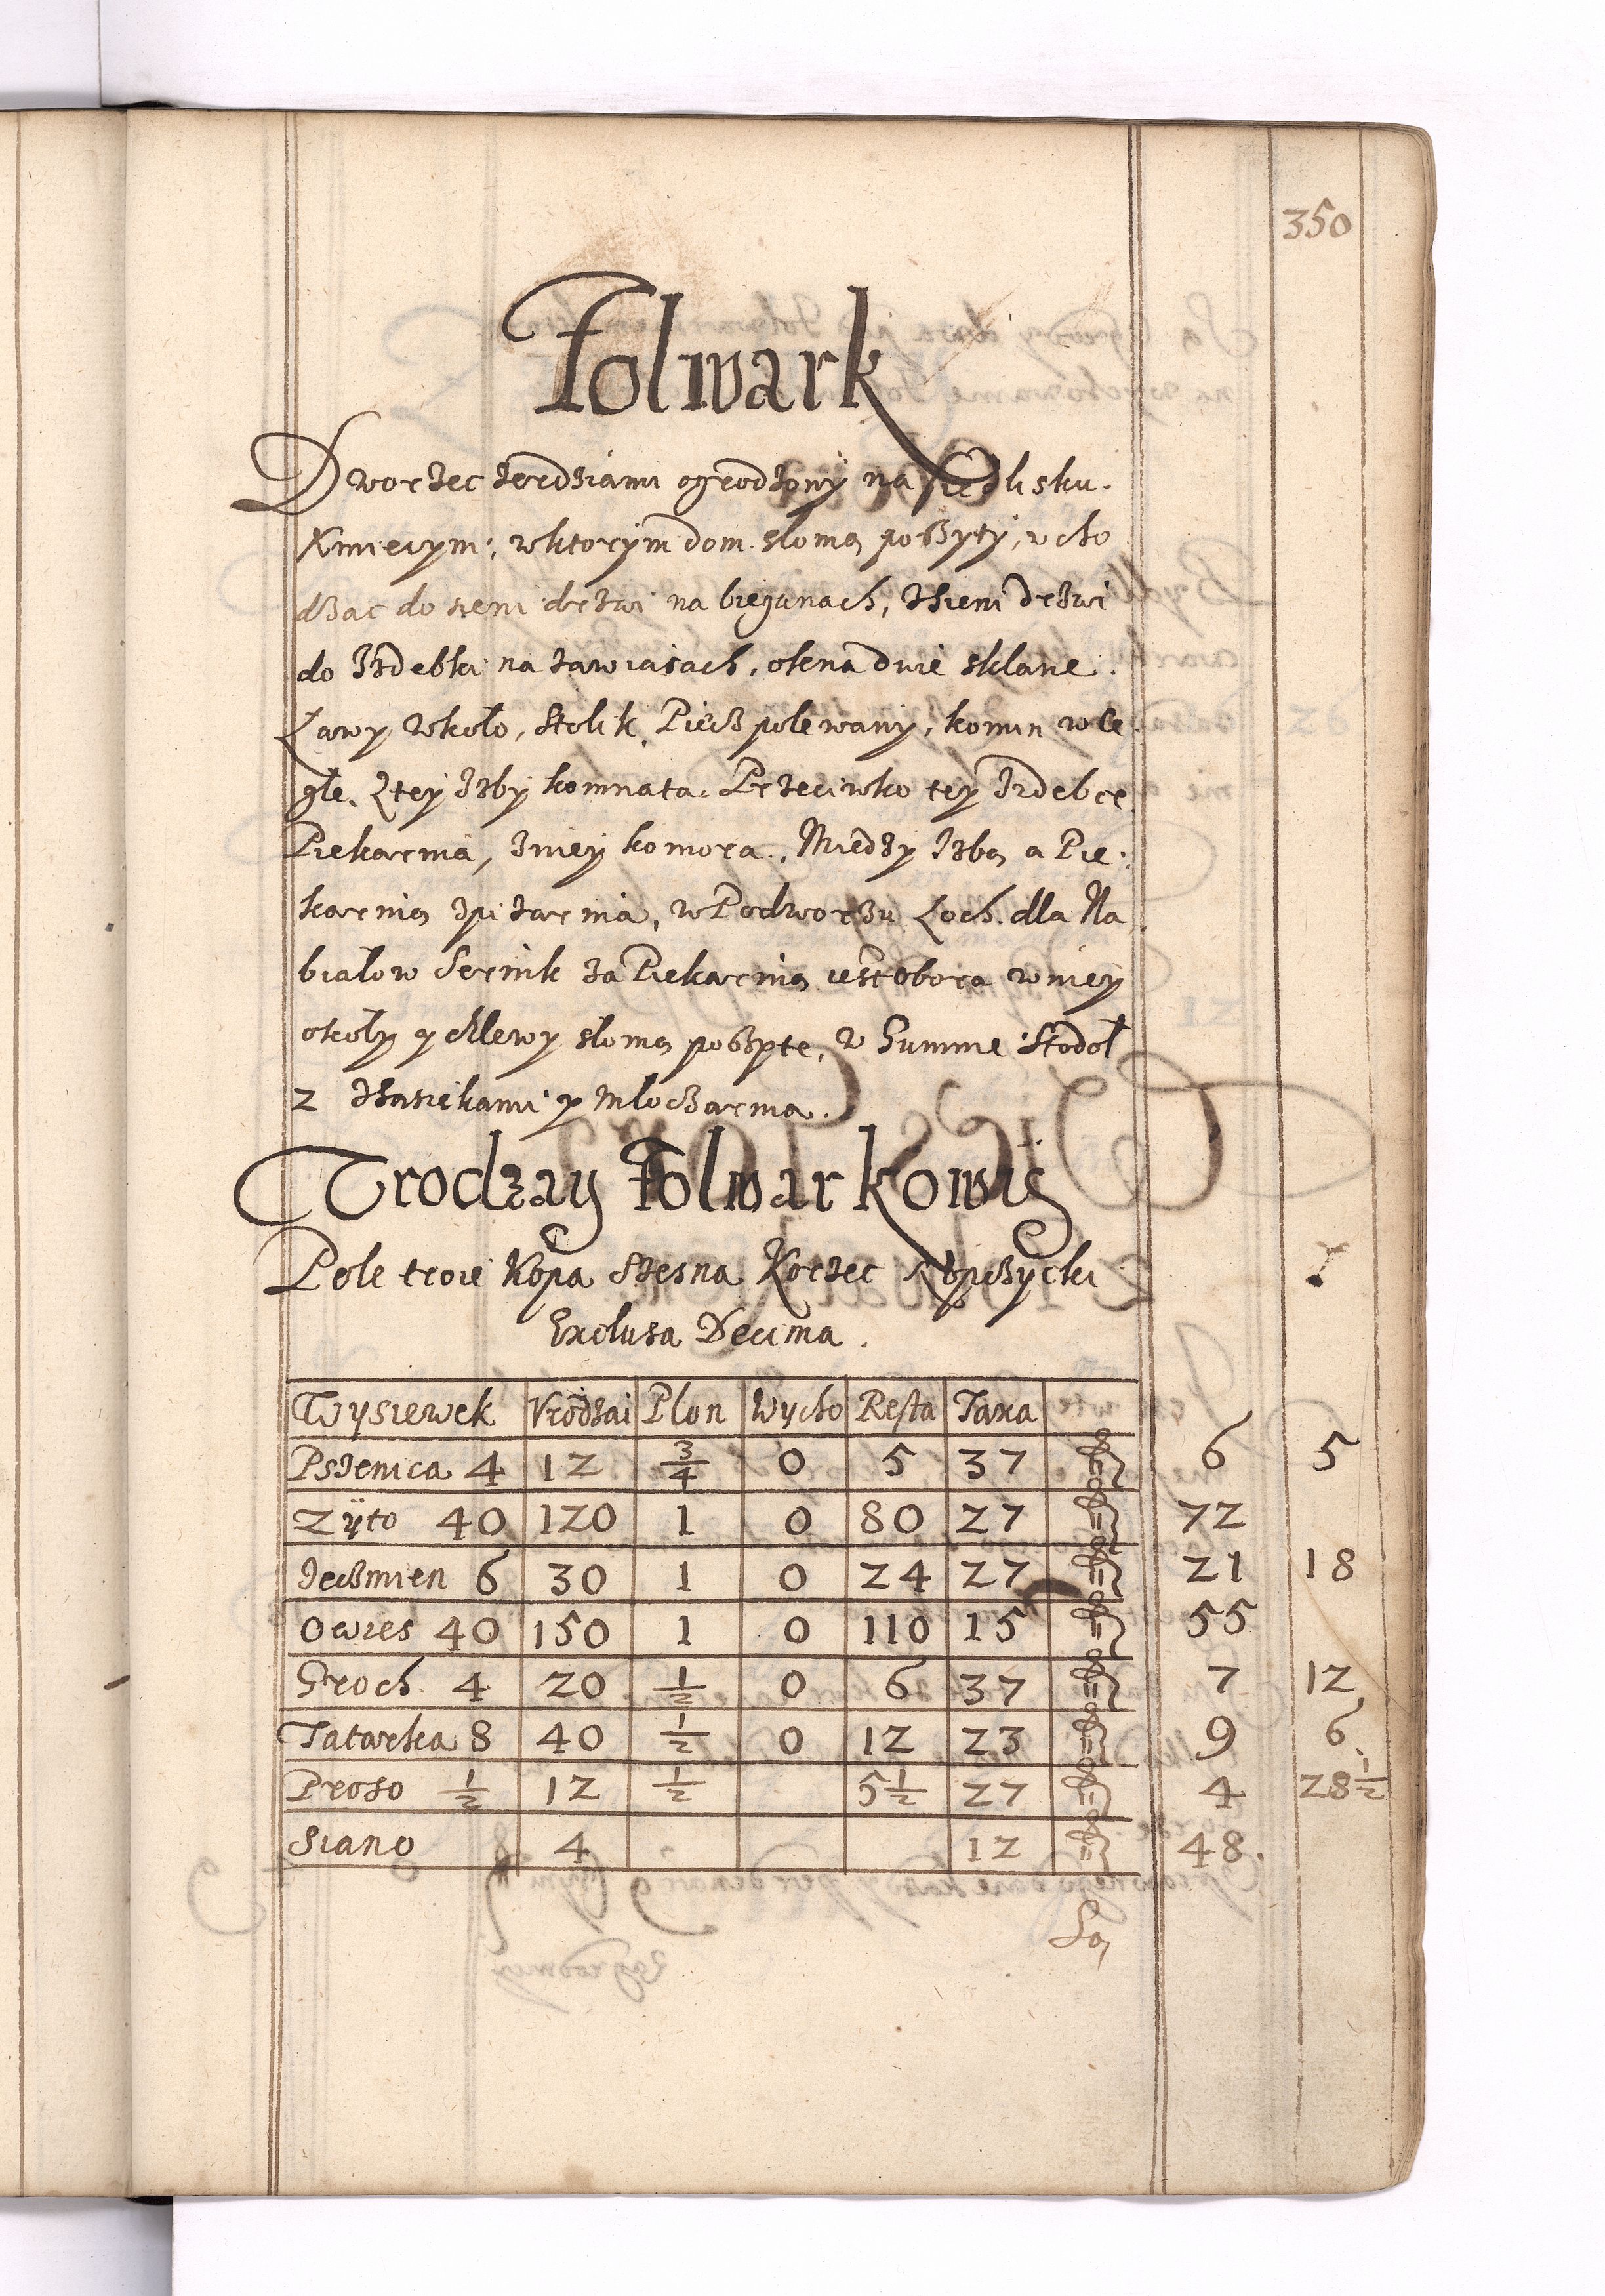 350
Folwark
Dworzec zerdziami ogrodzony na siedlisku
Kmiecym, wktorym dom słomą poszyty, wcho
dząc do sieni drzwi na biegunach, zsieni drzwi
do Izdebki na zawiasach, okna dwie sklane.
Ławy wkoło, stolik, Piecz polewany, komin wce
głe. Ztey Izby komnata. Przeciwko tey Izdebce
Piekarnia, zniey komora. Między Izbą a Pie
karnią spizarnia, w Podworzu Loch dla Na
białow Sernik za Piekarnią iest obora w niey
okoły y chlewy słomą poszyte, w Gumnie Stodoł
2 zsasiekami y młoczarnia.
Vrodzay Folwarkowy
Pole troie Kopa Szesna Korzec Ropczycki
Exclusa Decima.
Wysiewek Vrodzai Plon Wycho Resta Taxa
Pszenica 4 12 3/4 0 5 37 6 5
Zÿto 40 120 1 0 80 27 72
Jeczmien 6 30 1 0 24 27 21 18
Owies 40 150 1 0 110 15 55
Groch 4 20 1/2 0 6 37 7 12
Tatarka 8 40 1/2 0 12 23 9 6
Proso 1/2 12 1/2 5 1/2 27 4 28 1/2
Siano 4 12 48.
Są